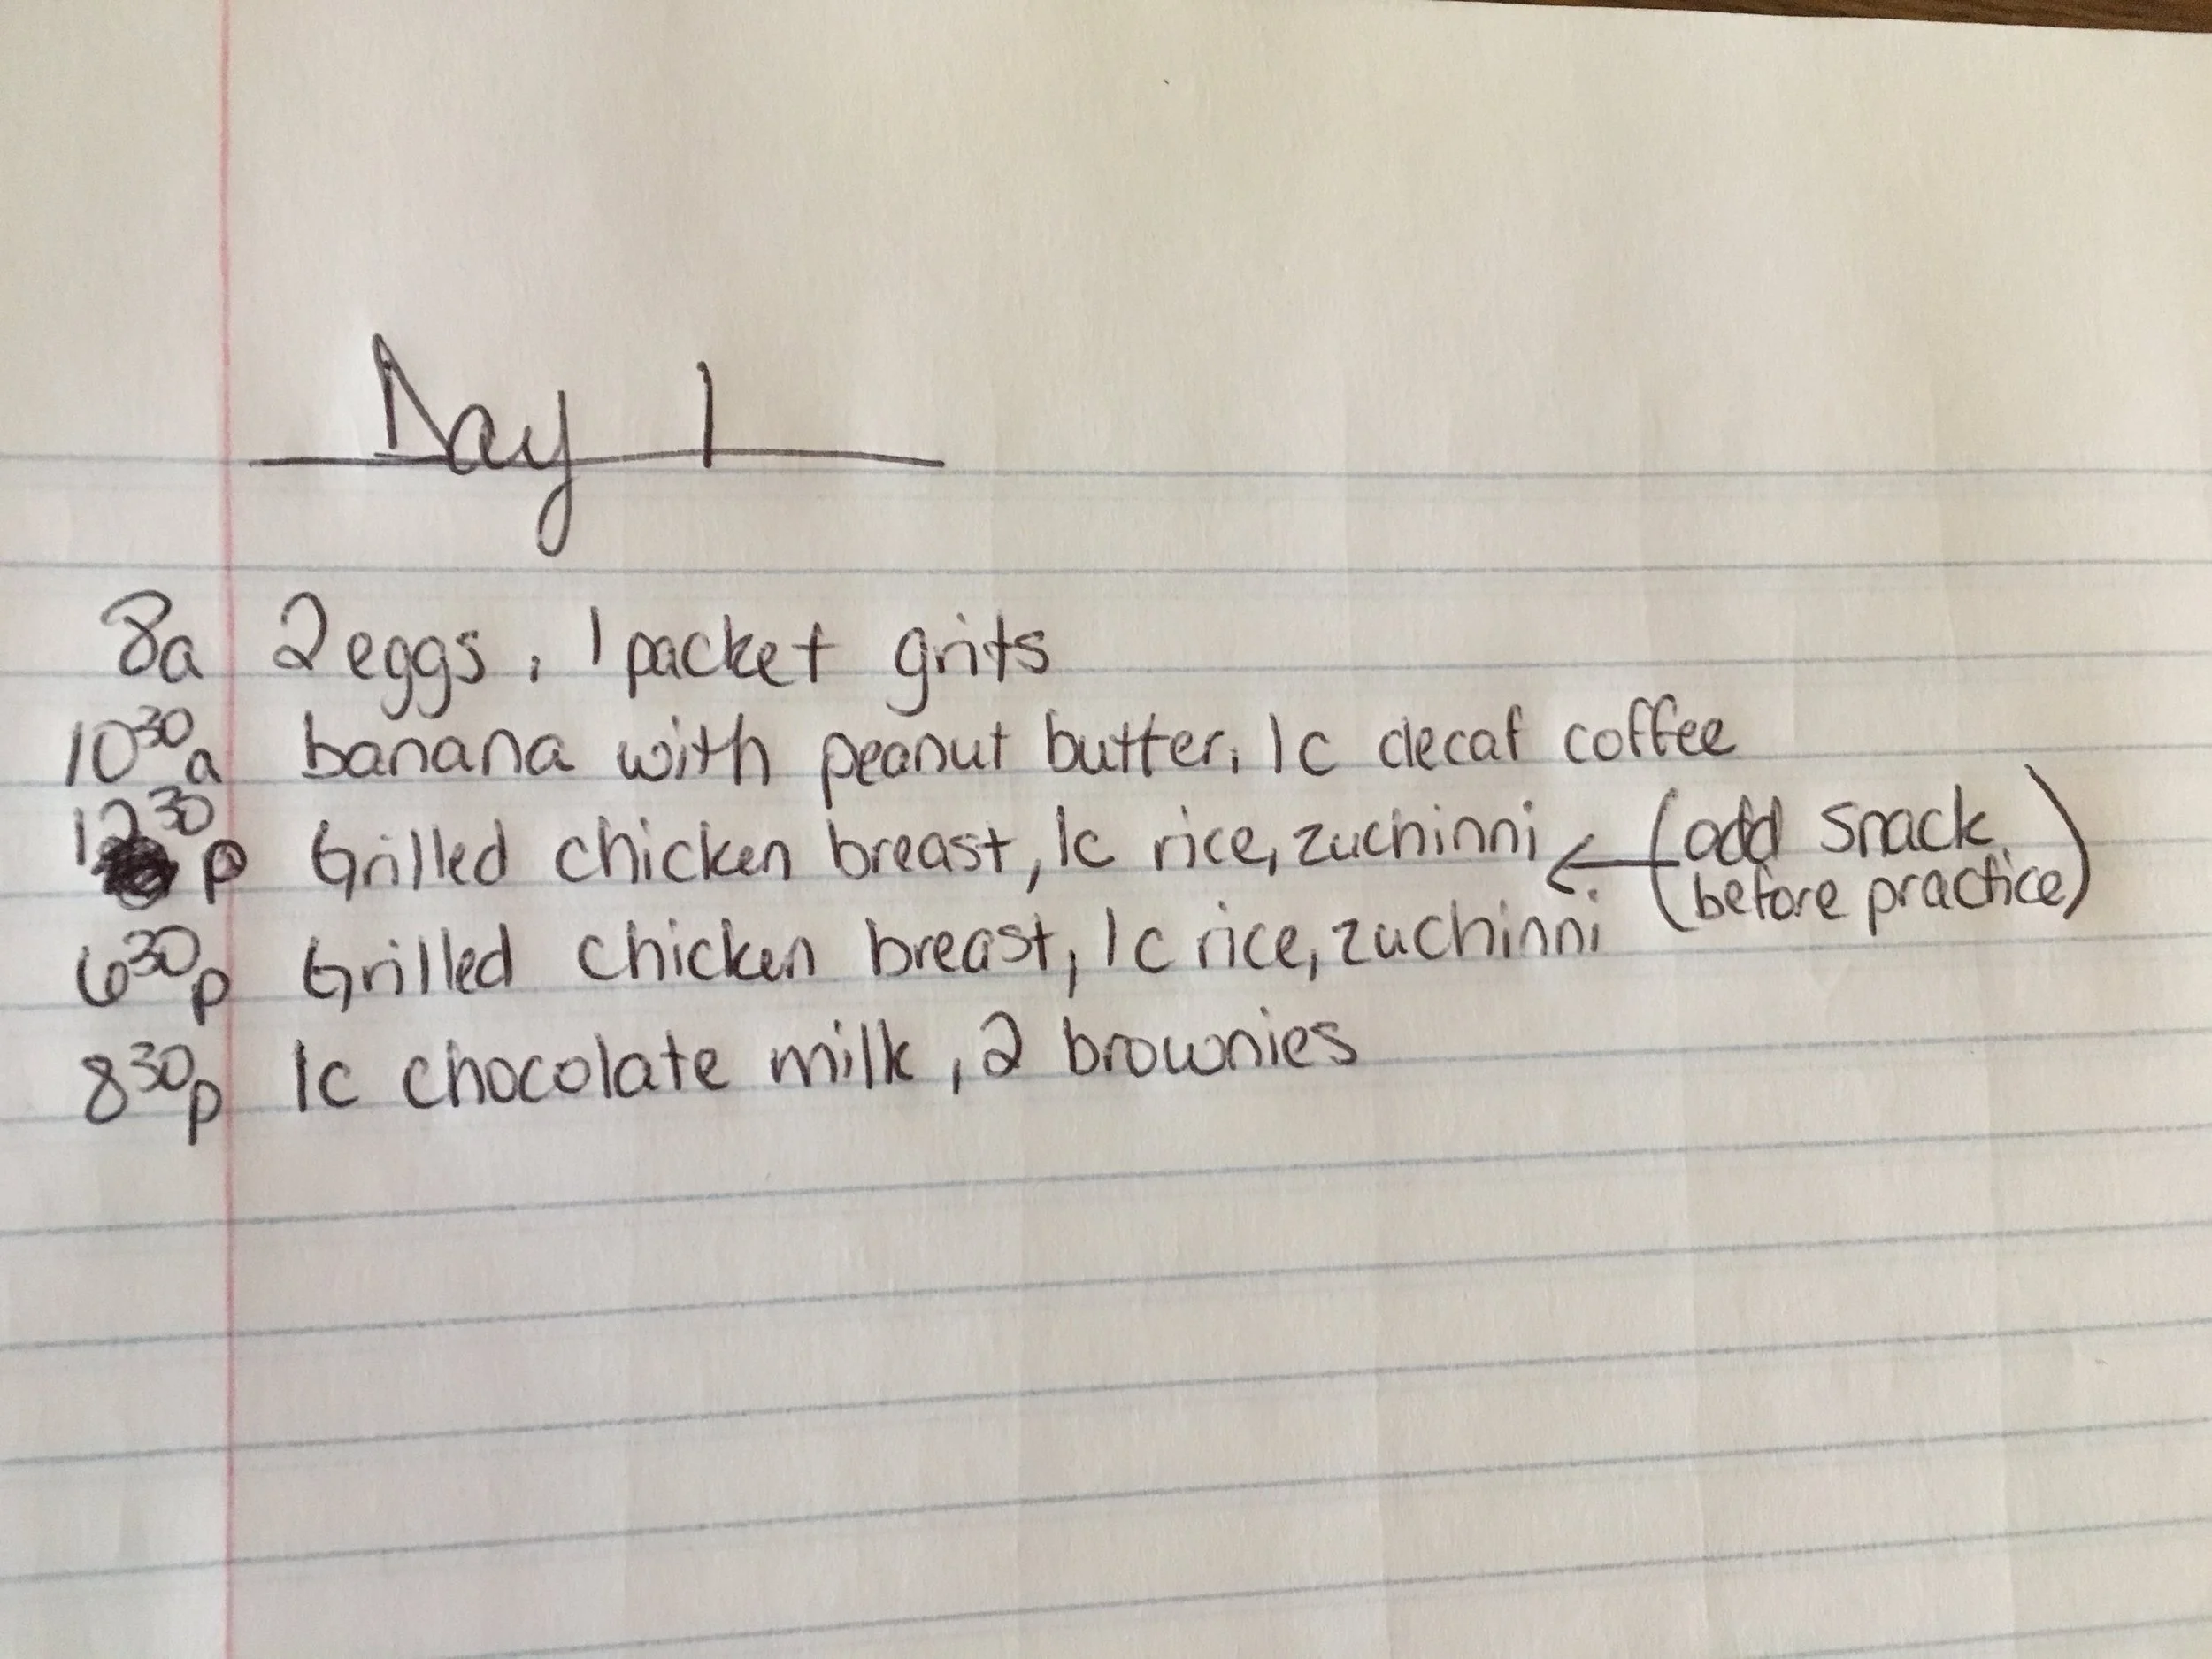 Day 1
8a 2 eggs, 1 packet grits
10³⁰a banana with peanut butter, 1c decaf coffee
12³⁰p Grilled chicken breast, 1c rice, zuchinni ← (add snack before practice)
6³⁰p Grilled chicken breast, 1c rice, zuchinni
8³⁰p 1c chocolate milk, 2 brownies